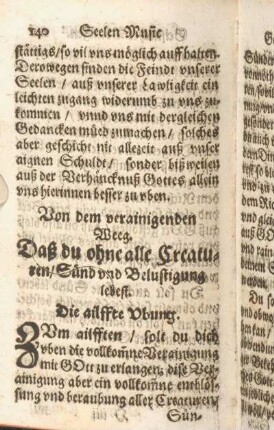 140 Seelen Music
stättigs/ so vil vns möglich auff halten.
Derowegen finden die Feindt vnserer
Seelen / auß vnserer Lawligkeit ein
leichten zugang widerumb zu vns zu-
kommen / vnnd vns mit dergleichen
Gedancken müed zumachen / solches
aber geschicht nit allezeit auß vnser
aignen Schuldt / sonder bißweilen
auß der Verhäncknuß Gottes allein
vns hierinnen besser zu vben.
Von dem verainigenden
Weeg.
Daß du ohne alle Creatu-
ren/ Sünd vnd Belustigung
lebest.
Die ailffte Vbung.
ZVm ailfften / solt du dich
vben die vollkomne Verainigung
mit GOtt zu erlangen; dise Ver-
ainigung aber ein vollkomne entblös-
sung vnd beraubung aller Creaturen/
Sün-